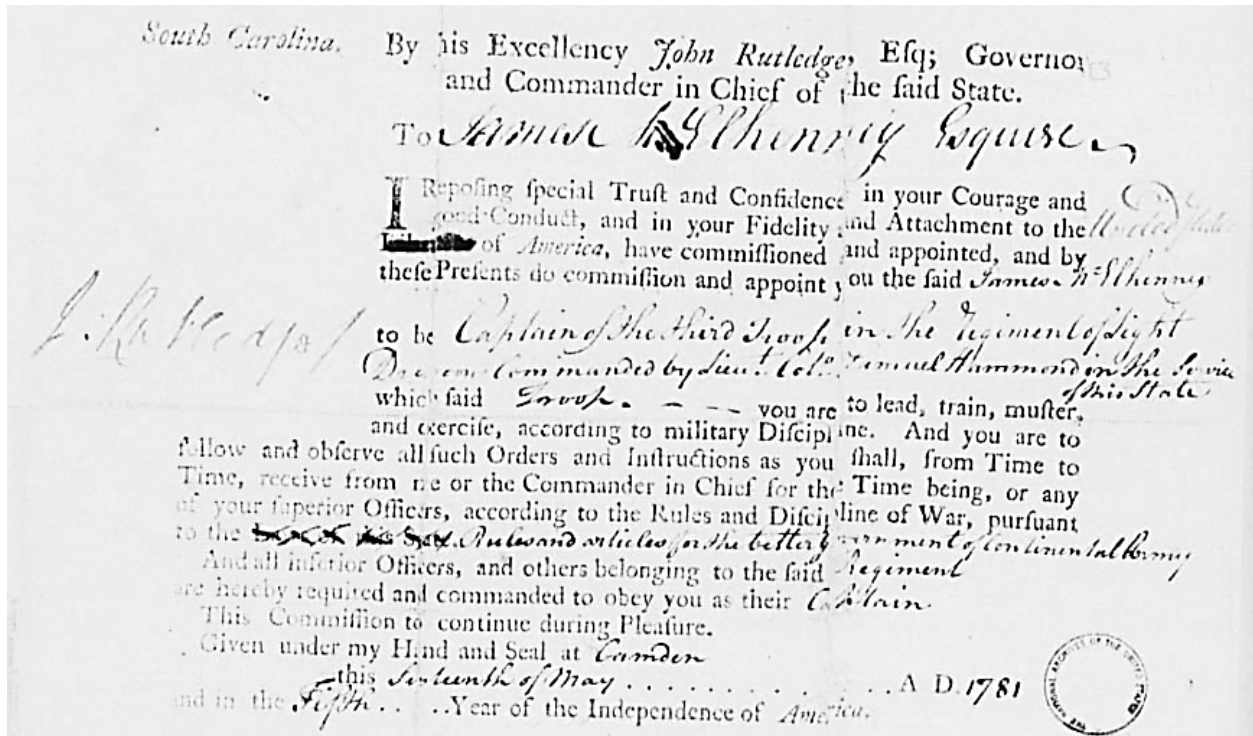 South Carolina.
By his Excellency John Rutledge, Eſq; Governor
and Commander in Chief of the ſaid State.
To James McElhenny Esquire
I Repoſing ſpecial Truſt and Confidence in your Courage and
good Conduct, and in your Fidelity and Attachment to the United States
of America, have commiſſioned and appointed, and by
theſe Preſents do commiſſion and appoint you the ſaid James McElhenny
J. Rutledge
to be Captain of the third Troop in the Regiment of Light
Dragoons Commanded by Lieut. Colo. Samuel Hammond in the Service
of this State
which ſaid Troop - - - you are to lead, train, muſter,
and exerciſe, according to military Diſcipline. And you are to
follow and obſerve all ſuch Orders and Inſtructions as you ſhall, from Time to
Time, receive from me or the Commander in Chief for the Time being, or any
of your ſuperior Officers, according to the Rules and Diſcipline of War, purſuant
to the Rules and articles for the better government of Continental Army
And all inferior Officers, and others belonging to the ſaid Regiment
are hereby required and commanded to obey you as their Captain
This Commiſſion to continue during Pleaſure.
Given under my Hand and Seal at Camden
this Sixteenth of May . . . . . . . . . . . . . . A D. 1781
and in the Fifth . . . . Year of the Independence of America.
THE NATIONAL ARCHIVES OF THE UNITED STATES